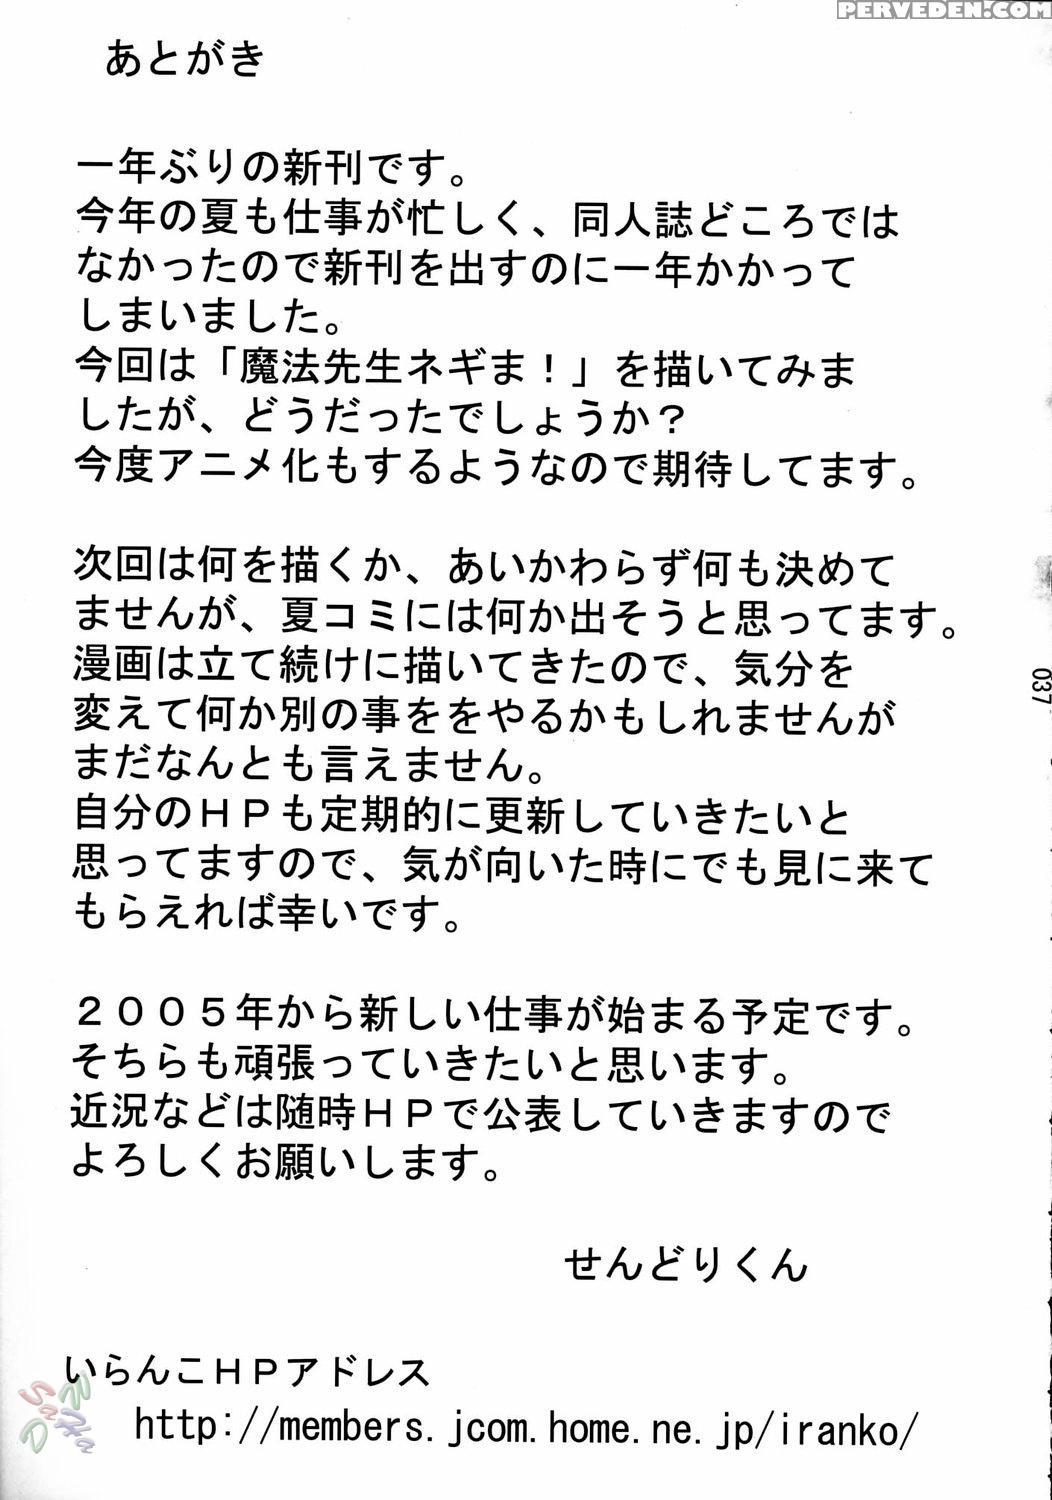 PERVEDEN.COM
あとがき
一年ぶりの新刊です。
今年の夏も仕事が忙しく、同人誌どころでは
なかったので新刊を出すのに一年かかって
しまいました。
今回は「魔法先生ネギま！」を描いてみま
したが、どうだったでしょうか？
今度アニメ化もするようなので期待してます。
次回は何を描くか、あいかわらず何も決めて
ませんが、夏コミには何か出そうと思ってます。
漫画は立て続けに描いてきたので、気分を
変えて何か別の事ををやるかもしれませんが
まだなんとも言えません。
自分のＨＰも定期的に更新していきたいと
思ってますので、気が向いた時にでも見に来て
もらえれば幸いです。
２００５年から新しい仕事が始まる予定です。
そちらも頑張っていきたいと思います。
近況などは随時ＨＰで公表していきますので
よろしくお願いします。
せんどりくん
いらんこＨＰアドレス
http://members.jcom.home.ne.jp/iranko/
037